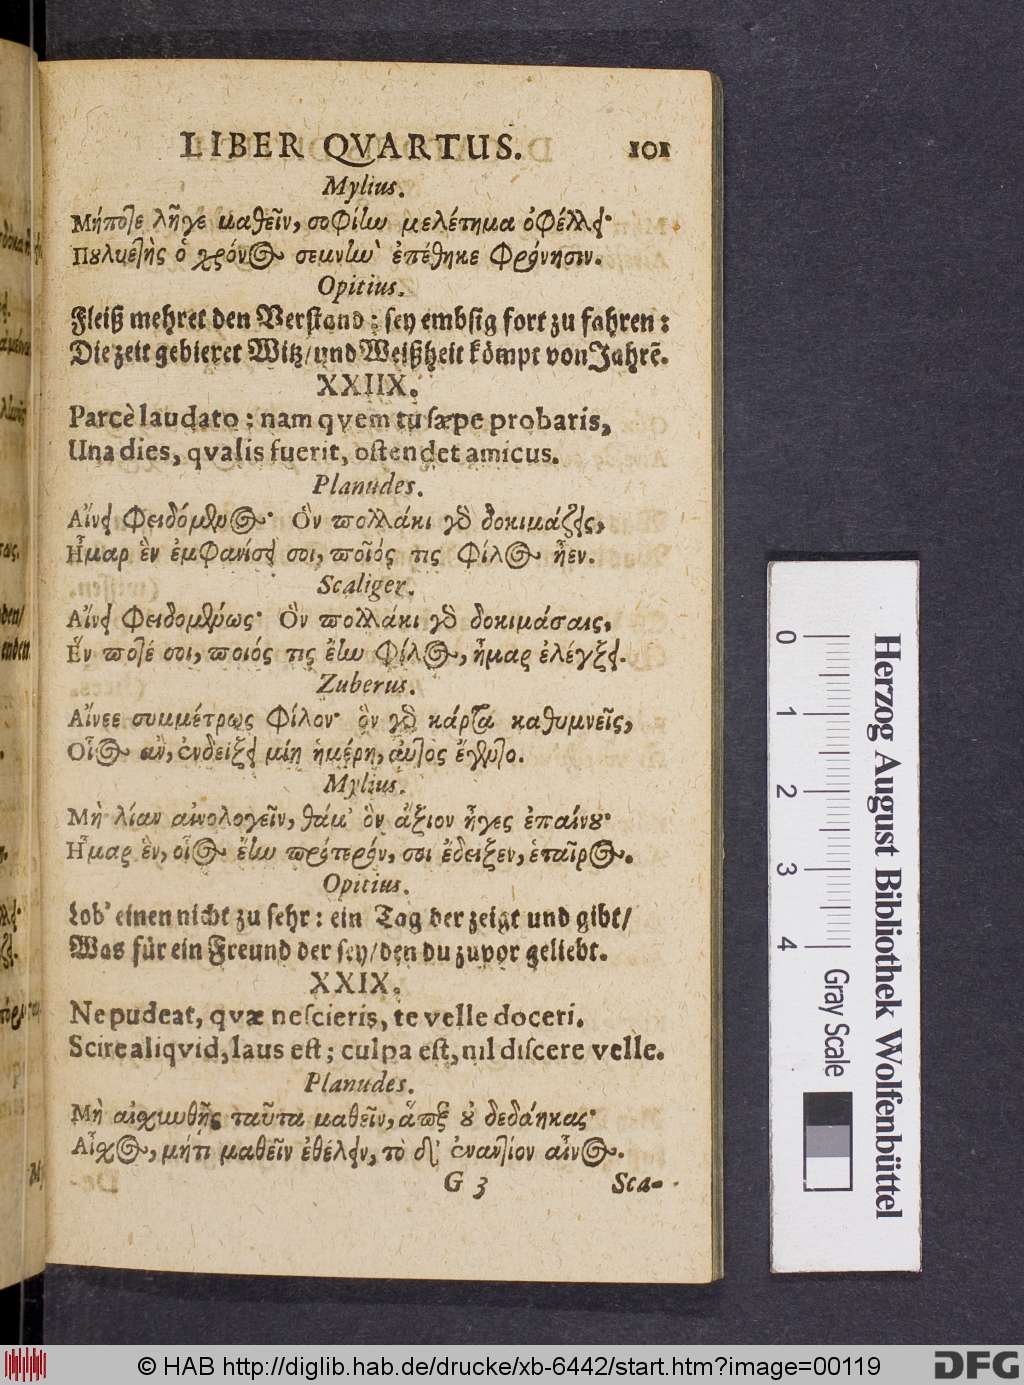 LIBER QVARTUS. 101
Mylius.
Μήποτε λῆγε μαθεῖν, σοφίlω μελέτημα ὀφέλλει·
Πουλυετὴς ὁ χρόνος σεμνlὼ ἐπέθηκε Φρόνησιν.
Opitius.
Fleiß mehret den Verstand : sey embsig fort zu fahren :
Die zeit gebieret Witz/und Weißheit kömpt von Jahrē.
XXIIX.
Parcè laudato : nam qvem tu sæpe probaris,
Una dies, qvalis fuerit, ostendet amicus.
Planudes.
Αἴνει Φειδόμενος· Ὃν πολλάκι γὸ δοκιμάζεις,
Ἦμαρ ἓν ἐμφανίσει σοι, ποῖός τις Φίλος ἦεν.
Scaliger.
Αἴνει Φειδομένως· Ὃν πολλάκι γὸ δοκιμάσαις,
Ἕν ποτέ σοι, ποιός τις ἔlω Φίλος, ἦμαρ ἐλέγξει.
Zuberus.
Αἴνεε συμμέτρως Φίλον· ὃν γὸ κάρτα καθυμνεῖς,
Οἷος ἂν, ἐνδείξει μίη ἡμέρη, αὐτος ἔγεντο.
Mylius.
Μὴ λίαν αἰνολογεῖν, θάμ' ὃν ἄξιον ἦγες ἐπαίνου·
Ἦμαρ ἓν, οἷος ἔlω πρότερόν, σοι ἐδειξεν, ἑταῖρος.
Opitius.
Lob' einen nicht zu sehr : ein Tag der zeigt und gibt/
Was für ein Freund der sey/den du zuvor geliebt.
XXIX.
Ne pudeat, qvæ nescieris, te velle doceri.
Scire aliqvid, laus est; culpa est, nil discere velle.
Planudes.
Μὴ αἰσχυνθῇς ταῦτα μαθεῖν, ἅπερ οὐ δεδάηκας·
Αἶσχος, μήτι μαθεῖν ἐθέλειν, τὸ δ' ἐναντίον αἶνος.
G 3 Sca-
0 1 2 3 4
Gray Scale
Herzog August Bibliothek Wolfenbüttel
© HAB http://diglib.hab.de/drucke/xb-6442/start.htm?image=00119
DFG